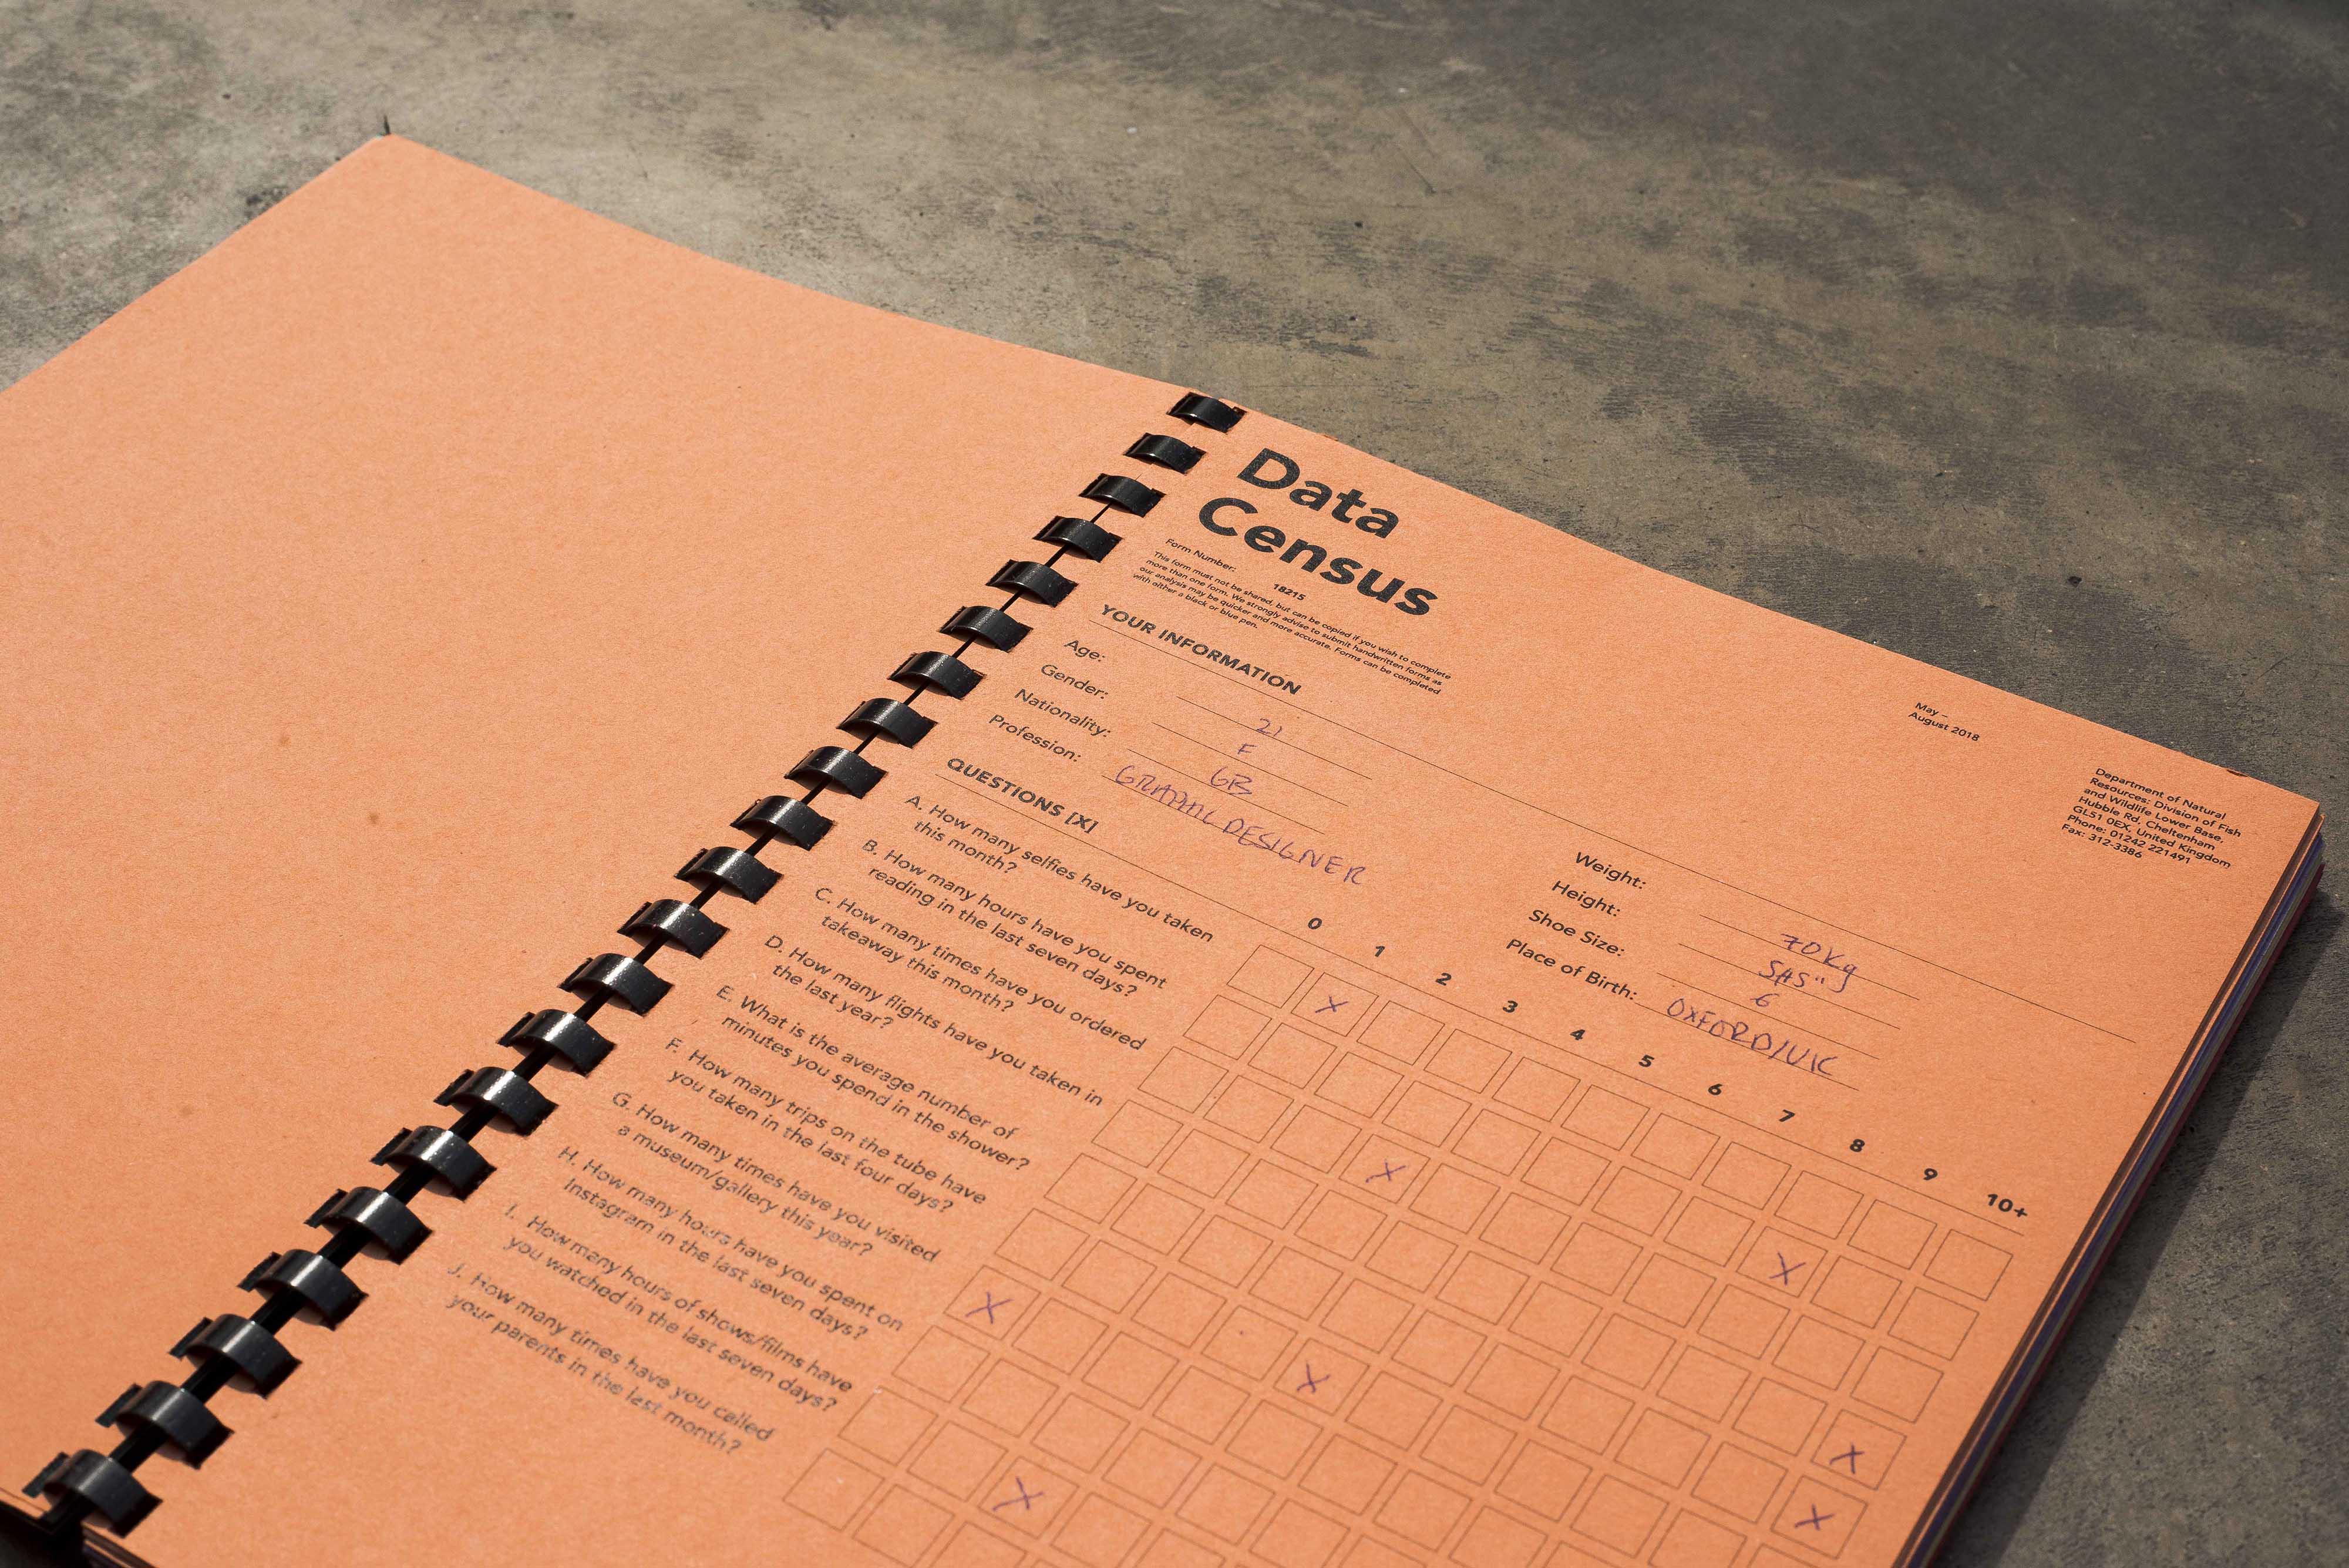 Data
Census
Form Number:
18215
This form must not be shared, but can be copied if you wish to complete
more than one form. We strongly advise to submit handwritten forms as
our analysis may be quicker and more accurate. Forms can be completed
with either a black or blue pen.
May –
August 2018
Department of Natural
Resources: Division of Fish
and Wildlife Lower Base,
Hubble Rd, Cheltenham
GL51 0EX, United Kingdom
Phone: 01242 221491
Fax: 312-3386
YOUR INFORMATION
Age: 21
Gender: F
Nationality: GB
Profession: GRAPHIC DESIGNER
Weight: 70Kg
Height:
Shoe Size: 6
Place of Birth: OXFORD/UK
QUESTIONS [X]
0 1 2 3 4 5 6 7 8 9 10+
A. How many selfies have you taken
this month?
B. How many hours have you spent
reading in the last seven days?
C. How many times have you ordered
takeaway this month?
D. How many flights have you taken in
the last year?
E. What is the average number of
minutes you spend in the shower?
F. How many trips on the tube have
you taken in the last four days?
G. How many times have you visited
a museum/gallery this year?
H. How many hours have you spent on
Instagram in the last seven days?
I. How many hours of shows/films have
you watched in the last seven days?
J. How many times have you called
your parents in the last month?
X
X
X
X
X
X
X
X